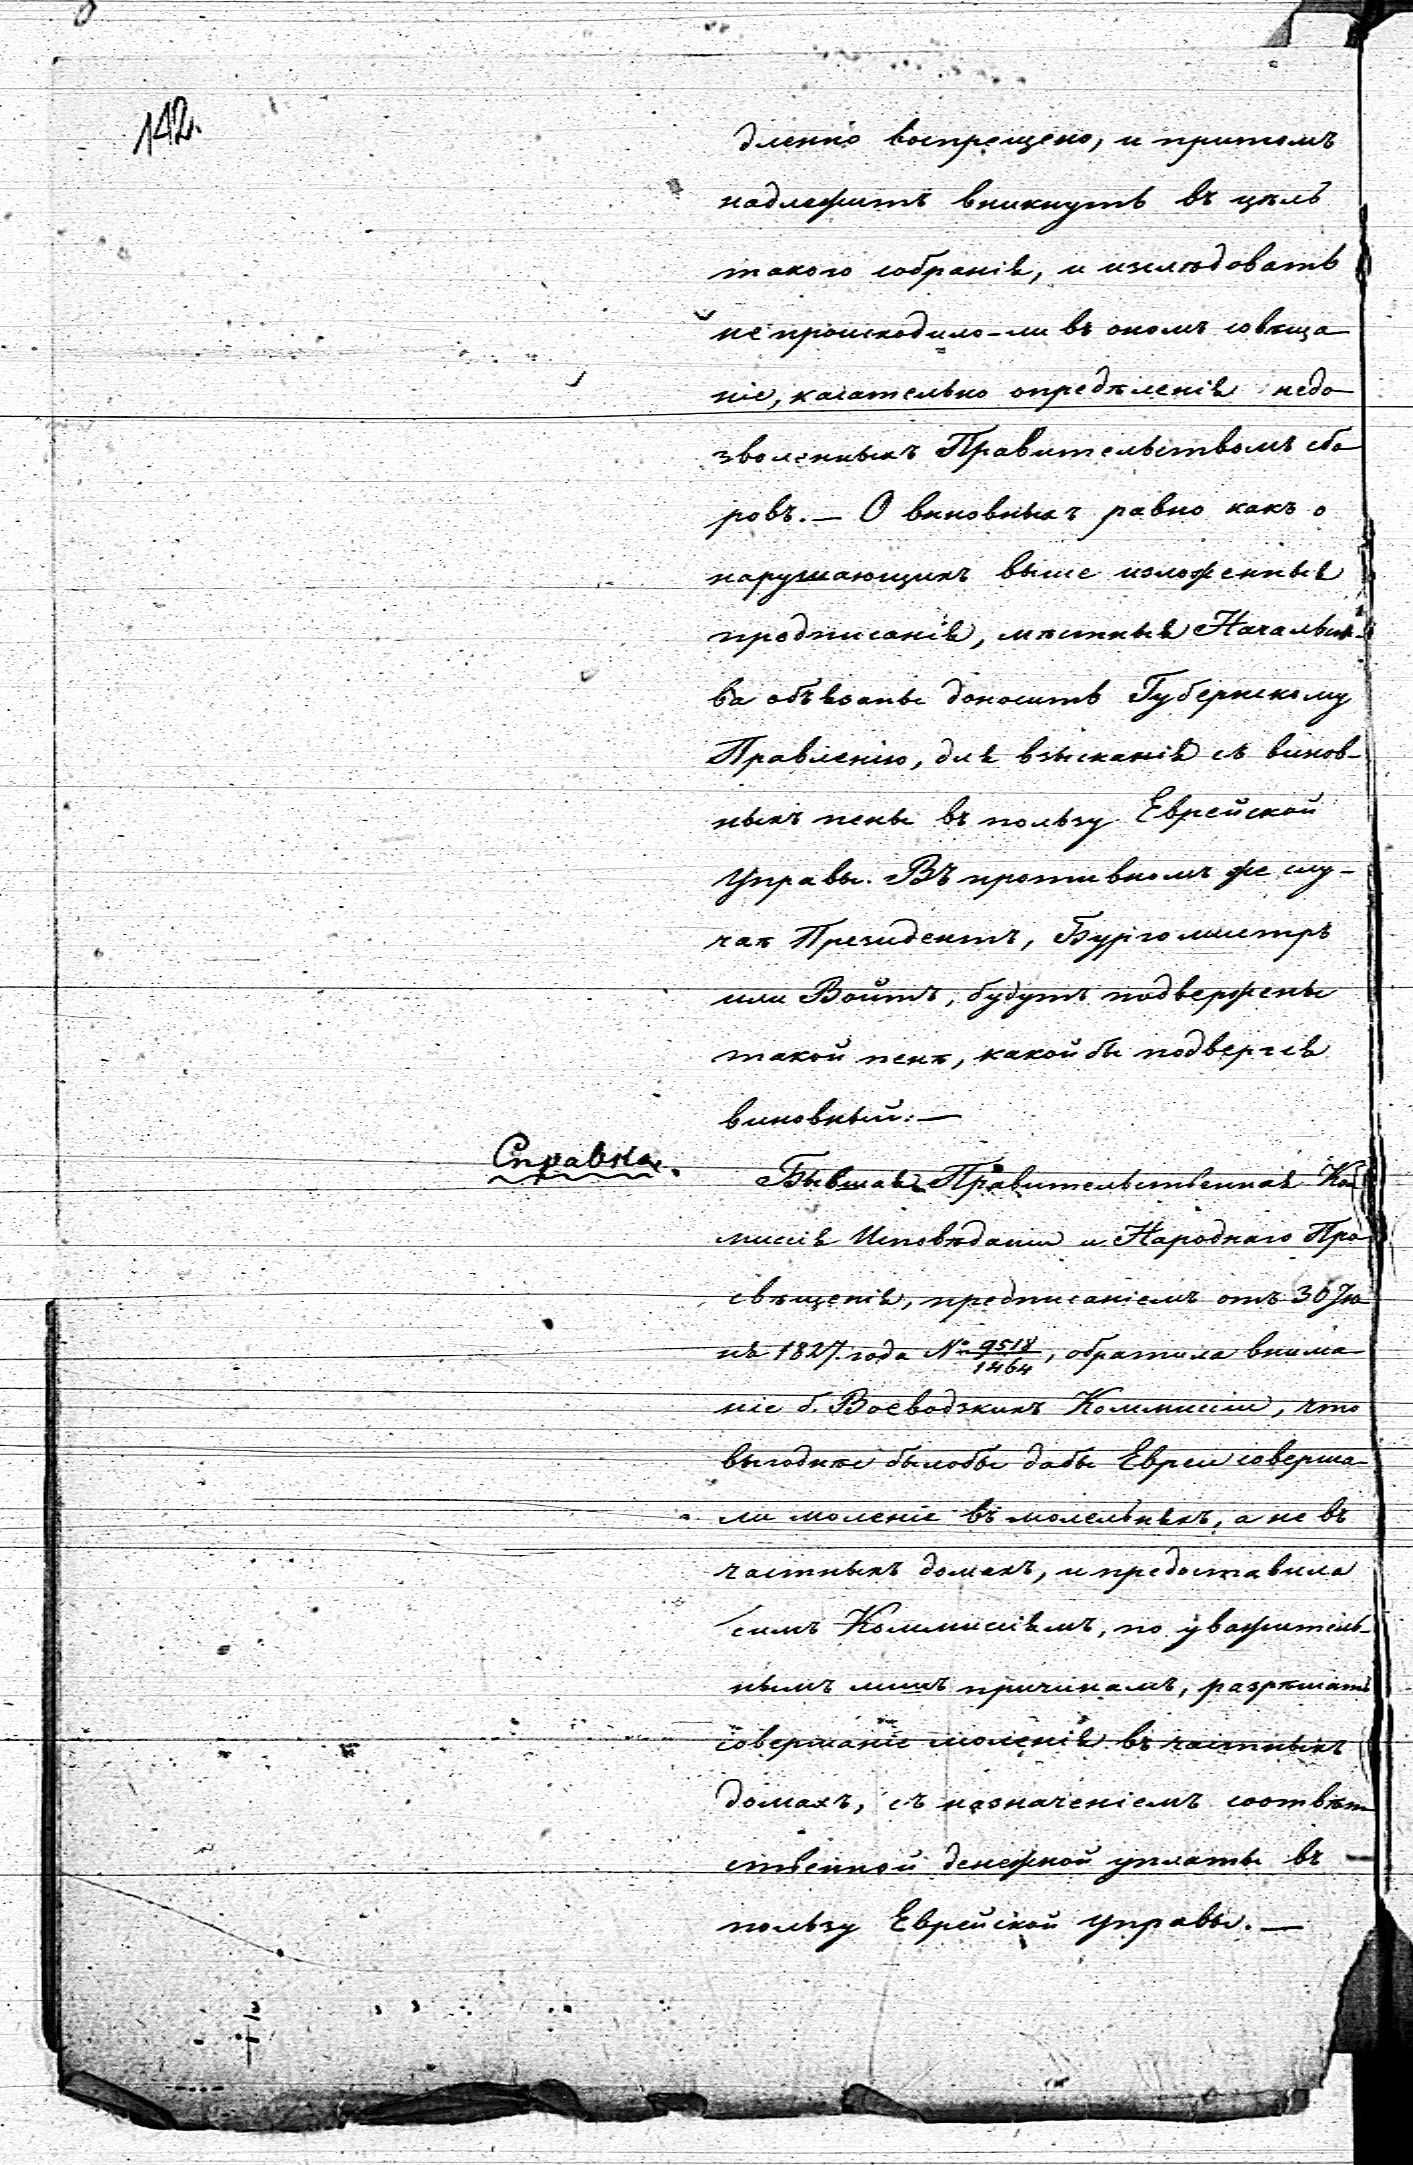 142.
дленно воспрещено, и притомъ
надлежитъ вникнуть въ цѣль
такого собранія, и изслѣдовать
не происходило-ли въ ономъ совѣща-
ніе, касательно опредѣленія недо-
зволенныхъ Правительствомъ сбо-
ровъ. — О виновныхъ равно какъ о
нарушающихъ выше изложенныя
предписанія, мѣстныя Начальст-
ва обѣязаны доносить Губернскому
Правленію, для взысканія съ винов-
ныхъ пены въ пользу Еврейской
Управы. Въ противномъ же слу-
чаѣ Президентъ, Бургомистръ
или Войтъ, будутъ подвержены
такой пенѣ, какой бы подвергся
виновный. —
Справка.
Бывшая Правительственная Ком
мисія Исповѣданій и Народнаго Про
свѣщенія, предписаніемъ отъ 30 Ію
нѣ 1827 года № 9518/1464, обратила внима-
ніе б. Воеводзкихъ Коммисій, что
выгоднѣе былобы дабы Евреи соверша-
ли моленіе въ молельняхъ, а не въ
частныхъ домахъ, и предоставила
симъ Коммисіямъ, по уважитель-
нымъ лишь причинамъ, разрѣшать
совершаніе моленія въ частныхъ
домахъ, съ назначеніемъ соотвѣт
ственной денежной уплаты въ
пользу Еврейской Управы. —